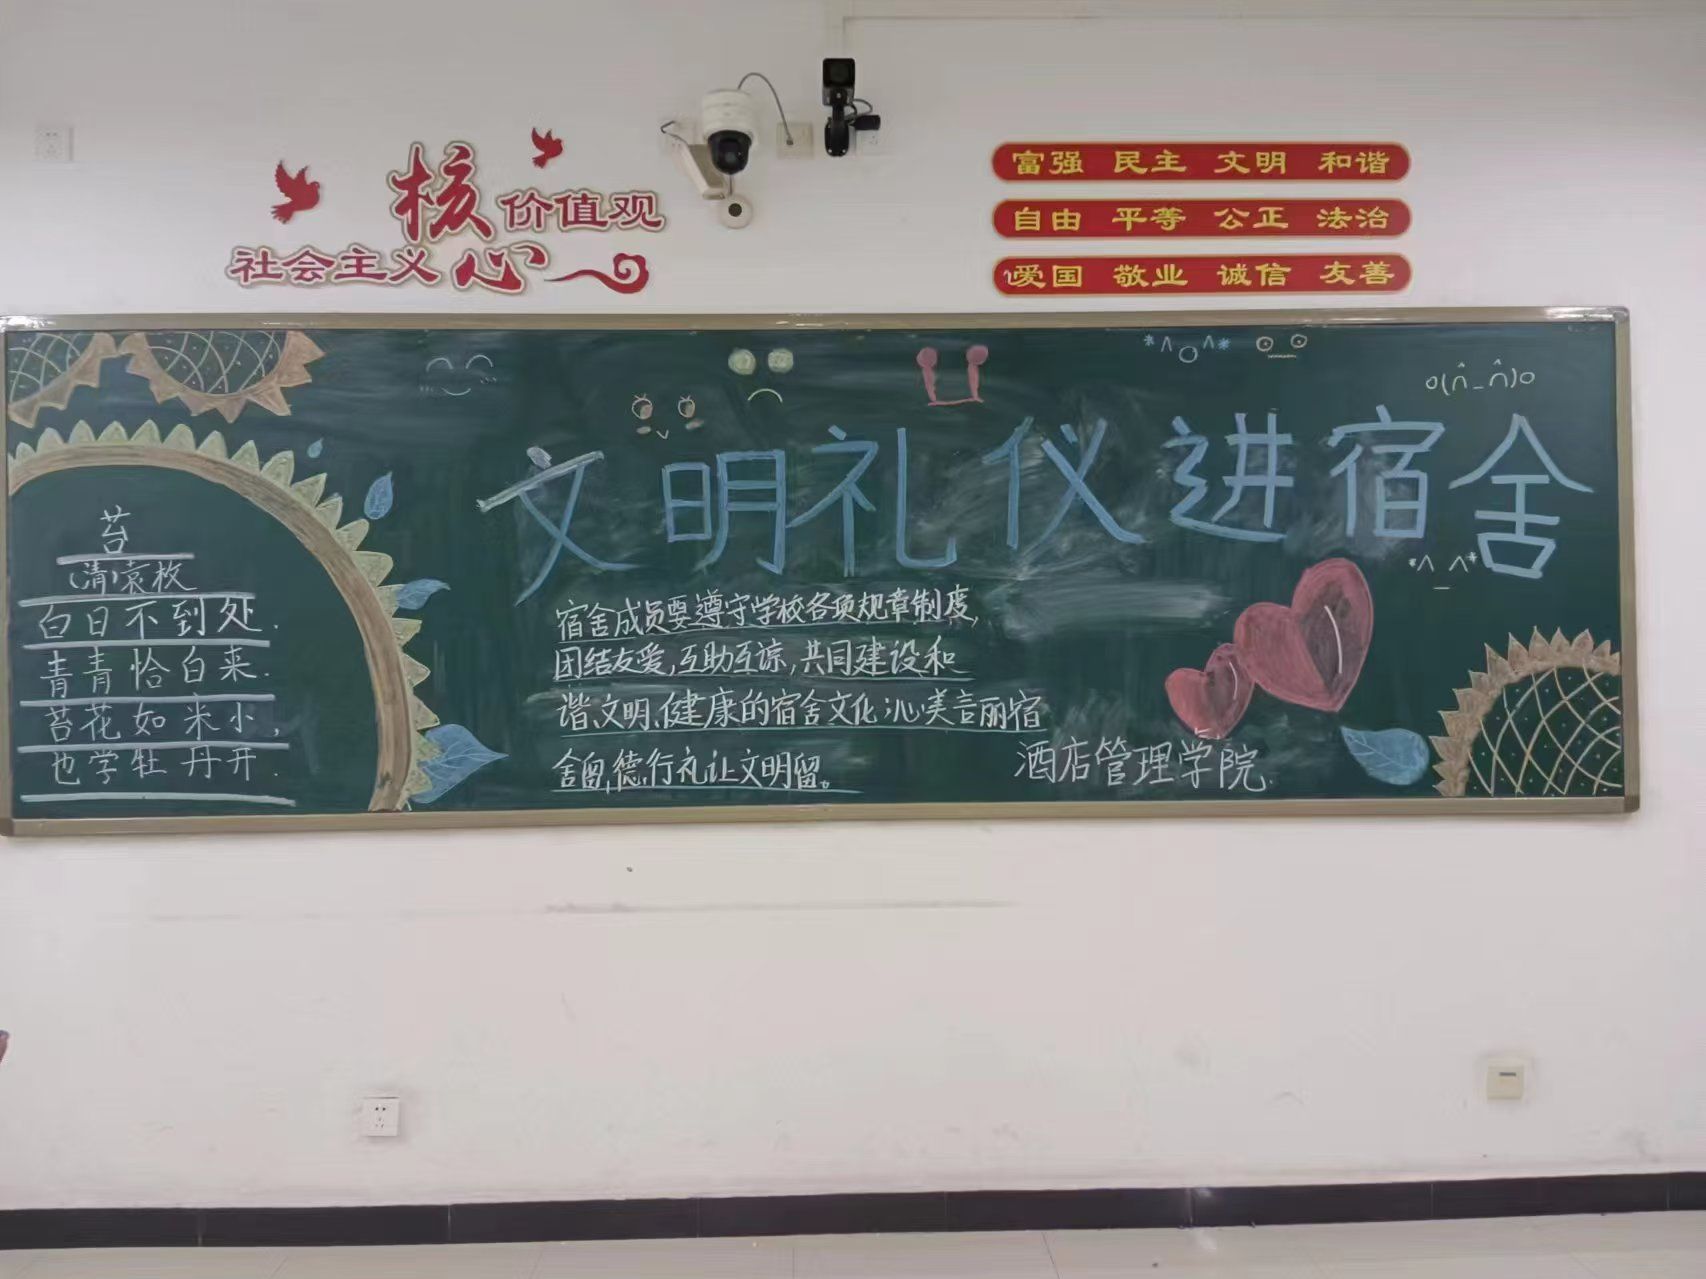 社会主义核心价值观
富强 民主 文明 和谐
自由 平等 公正 法治
爱国 敬业 诚信 友善
苔
(清)袁枚
白日不到处.
青青恰自来.
苔花如米小,
也学牡丹开.
*^o^*
o(n̂_n̂)o
文明礼仪进宿舍
*^_^*
宿舍成员要遵守学校各项规章制度,
团结友爱,互助互谅,共同建设和
谐、文明、健康的宿舍文化;心美言丽宿
舍留,德行礼让文明留。
酒店管理学院.